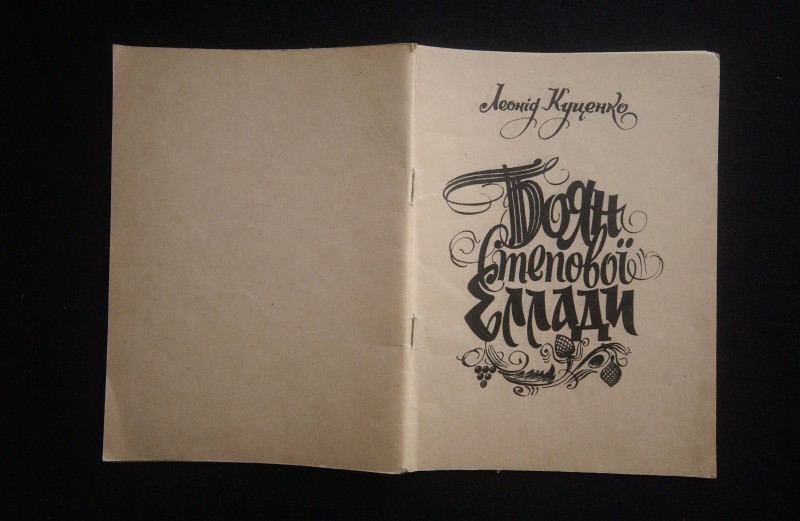 Леонід Куценко
Боян
Степової
Еллади